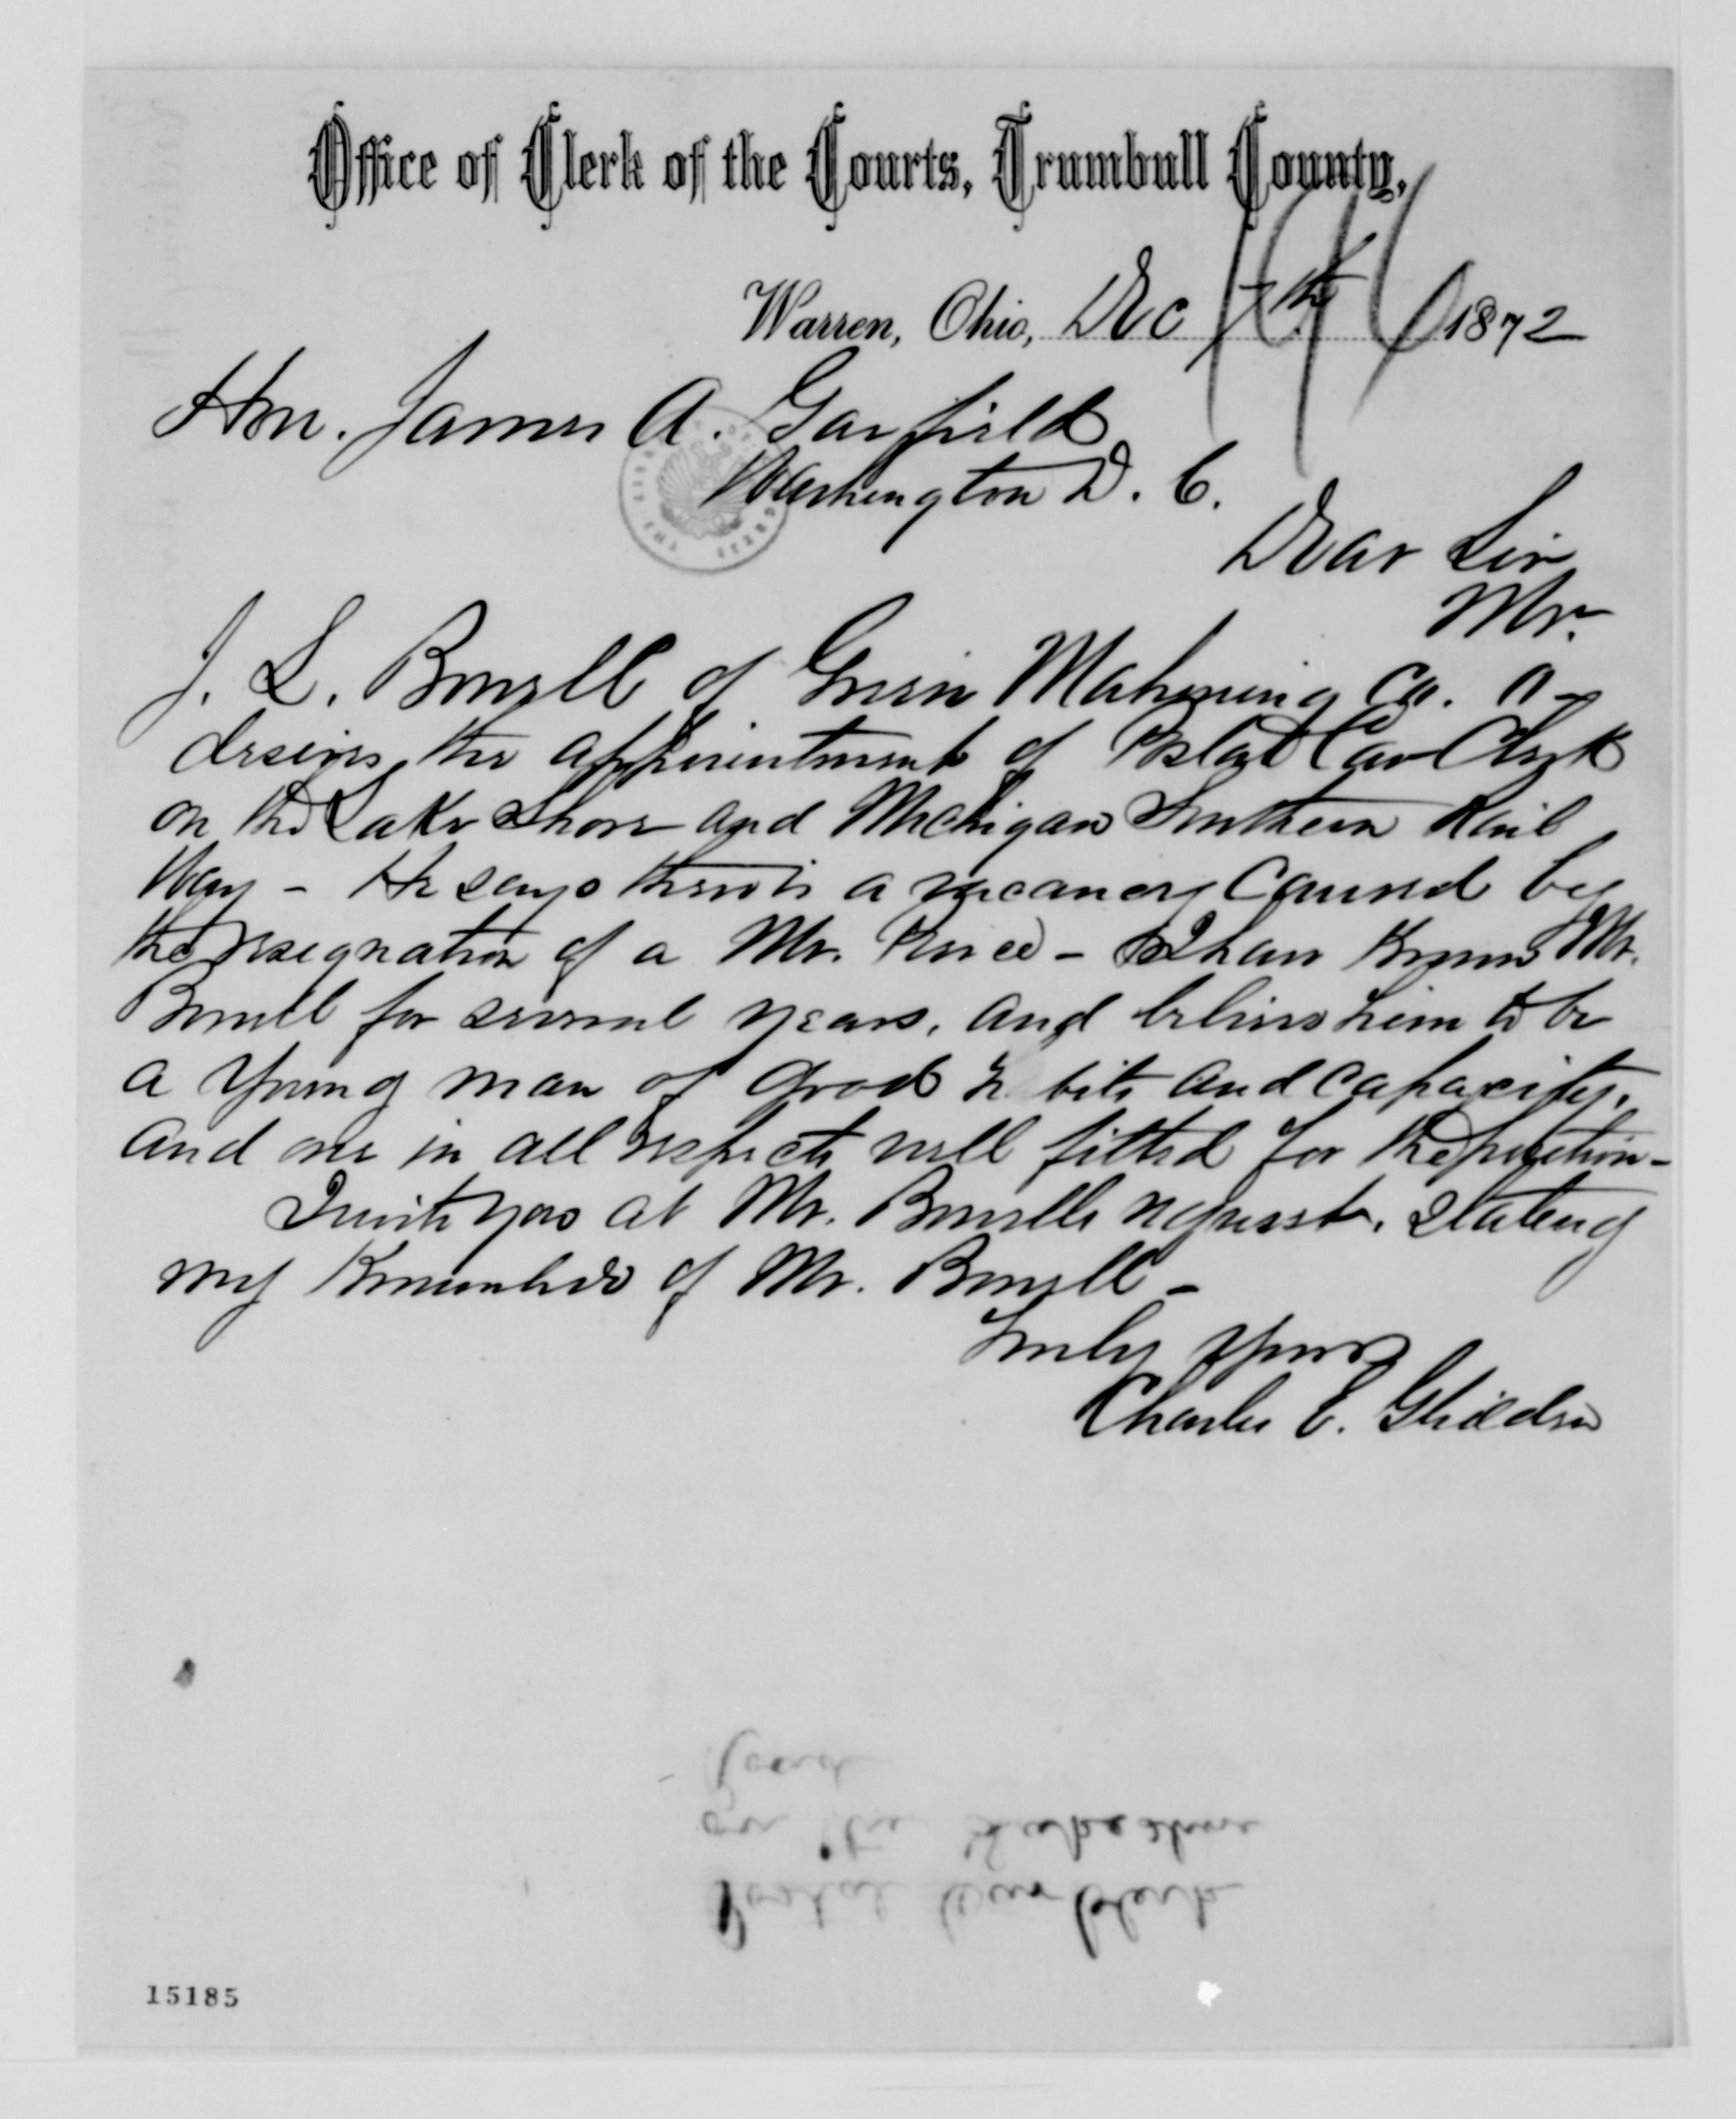 Office of Clerk of the Courts, Trumbull County,
Warren, Ohio, Dec 7th 1872
Hon. James A. Garfield
Washington D. C.
Dear Sir
Mr.
J. L. Bonsell of Green Mahoning Co. O -
desires the appointment of Postal Car Clerk
on the Lake Shore and Michigan Southern Rail
Way - He says there is a vacancy caused by
the resignation of a Mr. Price - I have known Mr.
Bonsell for several years, and believe him to be
a young man of good habits and capacity,
and one in all respects well fitted for the position -
I write you at Mr. Bonsells request, stating
my knowledge of Mr. Bonsell -
Truly yours
Charles E. Glidden
Postal Car Clerk
on the Lake Shore
Road
15185